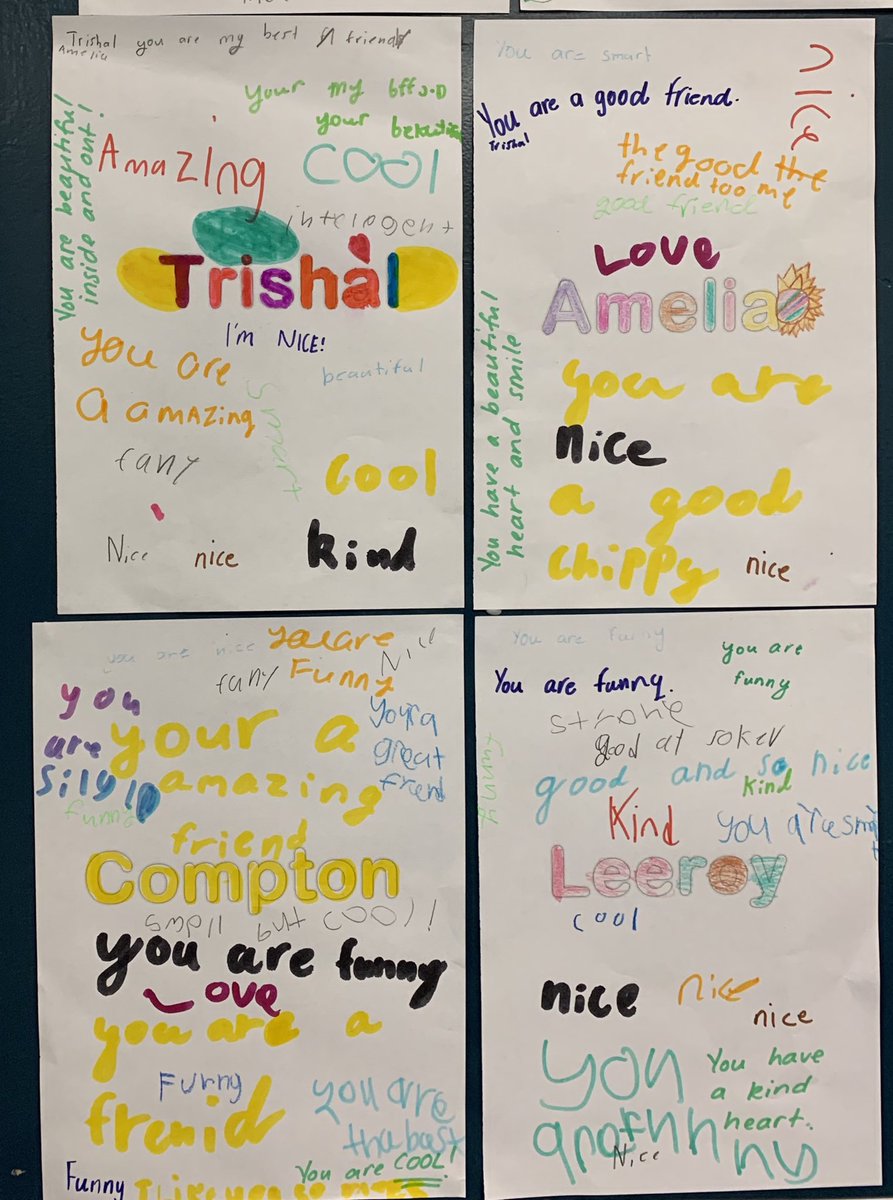 Trishal you are my best friend
Amelia
your my bff :D
your
You are beautiful
inside and out!
Amazing
cool
intelogent
Trishal
I'm NICE!
you are
a amazing
beautiful
smart
fany
cool
Nice
nice
kind
You are smart
nice
You are a good friend.
Trishal
the good the
friend too me
good friend
Love
Amelia
You have a beautiful
heart and smile
you are
nice
a good
chippy
nice
you are nice
you are
Funny
fany
Nice
you
are
silly
your a
amazing
friend
your a
great
friend
funny
Compton
small but cool!
you are funny
Love
you are a
frenid
Furny
you are
the best
You are COOL!
Funny
You are funny
you are
funny
You are funny.
strone
good at soker
funny
good and so nice
kind
Kind
you are smat
Leeroy
cool
nice
nice
nice
you
You have
a kind
heart.
Nice